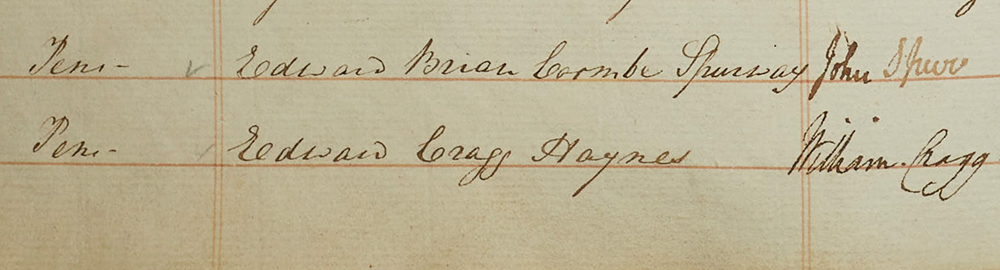 Pen:- ✓ Edward Brian Coombe Spurway John Spurw
Pen:- Edward Cragg Haynes William Cragg